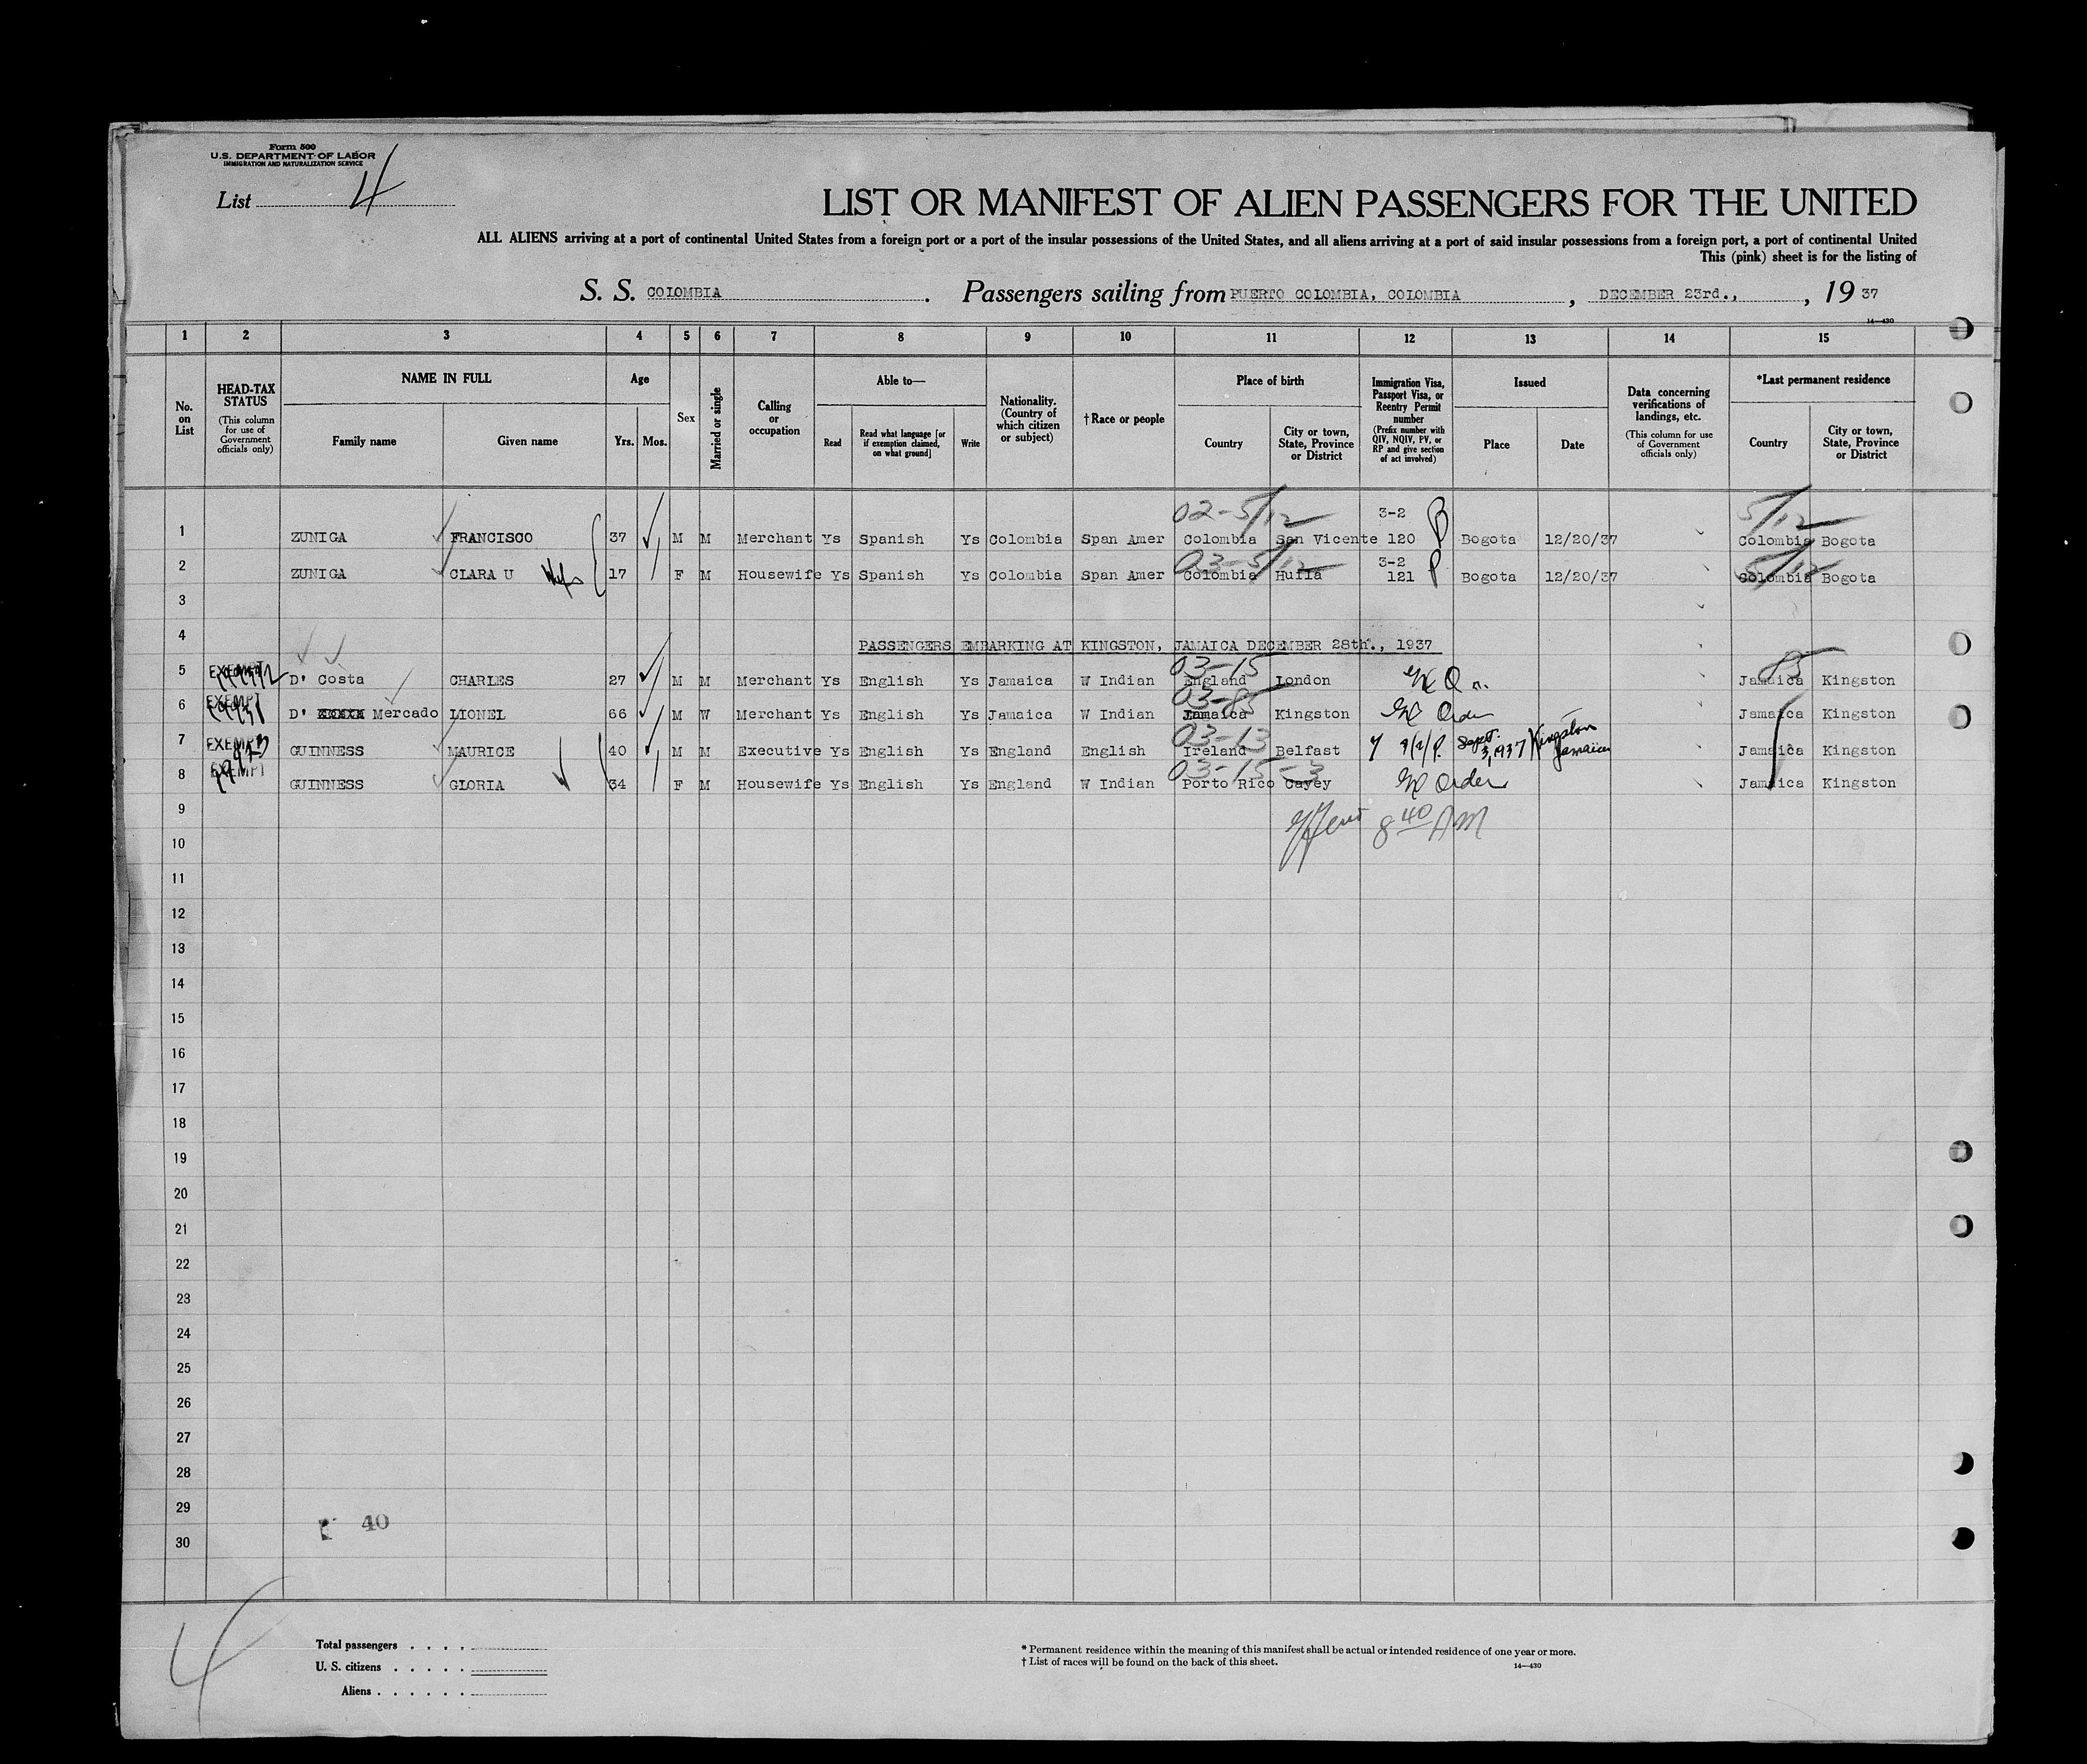 Form 500
U.S. DEPARTMENT OF LABOR
IMMIGRATION AND NATURALIZATION SERVICE
List 4
LIST OR MANIFEST OF ALIEN PASSENGERS FOR THE UNITED
ALL ALIENS arriving at a port of continental United States from a foreign port or a port of the insular possessions of the United States, and all aliens arriving at a port of said insular possessions from a foreign port, a port of continental United
This (pink) sheet is for the listing of
S. S. COLOMBIA. Passengers sailing from PUERTO COLOMBIA, COLOMBIA, DECEMBER 23rd., , 19 37
14—430
1 2 3 4 5 6 7 8 9 10 11 12 13 14 15
No. on List
HEAD-TAX STATUS
(This column for use of Government officials only)
NAME IN FULL
Family name Given name
Age
Yrs. Mos.
Sex
Married or single
Calling or occupation
Able to—
Read
Read what language [or if exemption claimed, on what ground]
Write
Nationality. (Country of which citizen or subject)
†Race or people
Place of birth
Country
City or town, State, Province or District
Immigration Visa, Passport Visa, or Reentry Permit number
(Prefix number with QIV, NQIV, PV, or RP and give section of act involved)
Issued
Place Date
Data concerning verifications of landings, etc.
(This column for use of Government officials only)
*Last permanent residence
Country
City or town, State, Province or District
02-5/12 3-2 5/12
1 ZUNIGA FRANCISCO 37 M M Merchant Ys Spanish Ys Colombia Span Amer Colombia San Vicente 120 Bogota 12/20/37 Colombia Bogota
03-5/12 3-2 5/12
2 ZUNIGA CLARA U Wife 17 F M Housewife Ys Spanish Ys Colombia Span Amer Colombia Hufla 121 Bogota 12/20/37 Colombia Bogota
3
4 PASSENGERS EMBARKING AT KINGSTON, JAMAICA DECEMBER 28th., 1937
03-15 85
5 EXEMPT D' Costa CHARLES 27 M M Merchant Ys English Ys Jamaica W Indian England London Jamaica Kingston
03-85
6 EXEMPT D' Mercado LIONEL 66 M W Merchant Ys English Ys Jamaica W Indian Jamaica Kingston Order Jamaica Kingston
03-13
7 EXEMPT GUINNESS MAURICE 40 M M Executive Ys English Ys England English Ireland Belfast Sept. 3, 1937 Kingston Jamaica Jamaica Kingston
03-15-3
8 EXEMPT GUINNESS GLORIA 34 F M Housewife Ys English Ys England W Indian Porto Rico Cayey Order Jamaica Kingston
9
8 40 AM
10
11
12
13
14
15
16
17
18
19
20
21
22
23
24
25
26
27
28
29
40
30
4
Total passengers . . . .
U. S. citizens . . . . .
Aliens . . . . . .
* Permanent residence within the meaning of this manifest shall be actual or intended residence of one year or more.
† List of races will be found on the back of this sheet.
14—430